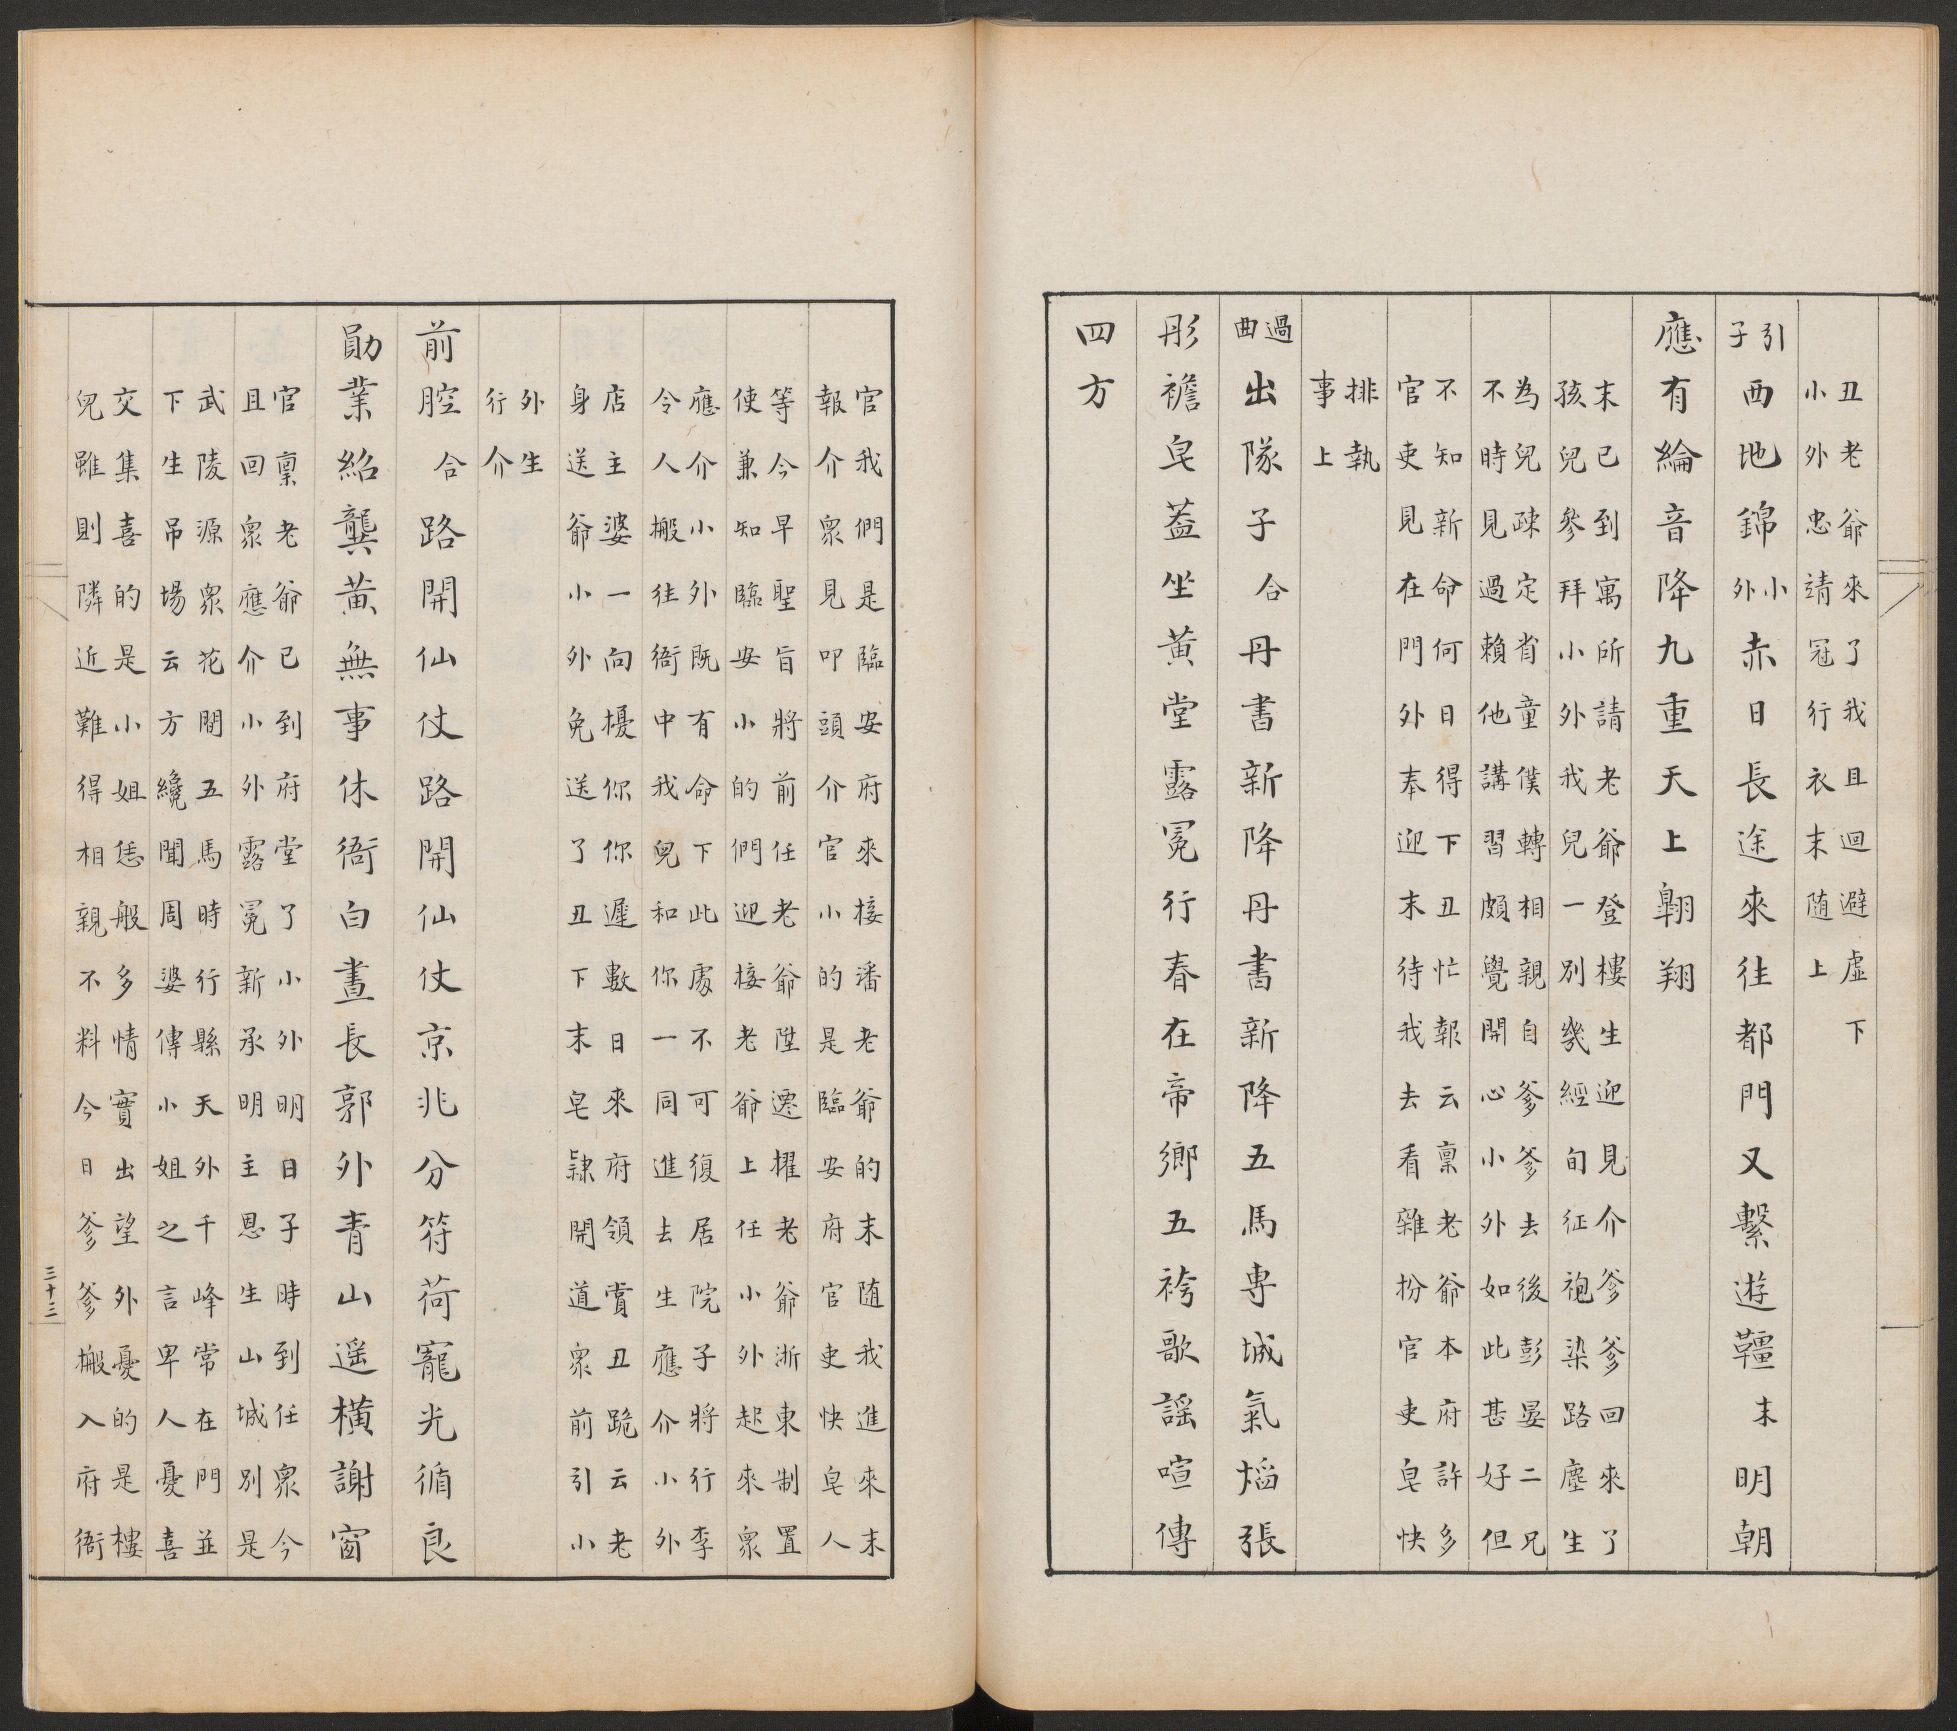 丑老爺來了我且迴避虛下
小外忠靖冠行衣末随上
引子西地錦小外赤日長途來往都門又繫遊韁末明朝
應有綸音降九重天上翺翔
末已到寓所請老爺登樓生迎見介爹爹回來了
孩兒參拜小外我兒一別幾經旬征袍染路塵生
為兒疎定省童僕轉相親自爹爹去後彭晏二兄
不時見過賴他講習頗覺開心小外如此甚好但
不知新命何日得下丑忙報云禀老爺本府許多
官吏見在門外奉迎末待我去看雜扮官吏皂快
排執
事上
過曲出隊子合丹書新降丹書新降五馬専城氣熖張
彤襜皂蓋坐黃堂露冕行春在帝鄉五袴歌謡喧傳
四方
官我們是臨安府來接潘老爺的末随我進來末
報介衆見叩頭介官小的是臨安府官吏快皂人
等今早聖旨將前任老爺陞遷擢老爺浙東制置
使兼知臨安小的們迎接老爺上任小外起來衆
應介小外既有命下此處不可復居院子將行李
令人搬往衙中我兒和你一同進去生應介小外
店主婆一向擾你你遲數日來府領賞丑跪云老
身送爺小外免送了丑下末皂隷開道衆前引小
外生
行介
前腔合路開仙仗路開仙仗京兆分符荷寵光循良
勛業紹龔黄無事休衙白晝長郭外青山遥橫謝窗
官禀老爺已到府堂了小外明日子時到任衆今
且回衆應介小外露冕新承明主恩生山城別是
武陵源衆花間五馬時行縣天外千峰常在門並
下生吊場云方纔聞周婆傳小姐之言卑人憂喜
交集喜的是小姐恁般多情實出望外憂的是樓
兒雖則隣近難得相親不料今日爹爹搬入府衙
三十三